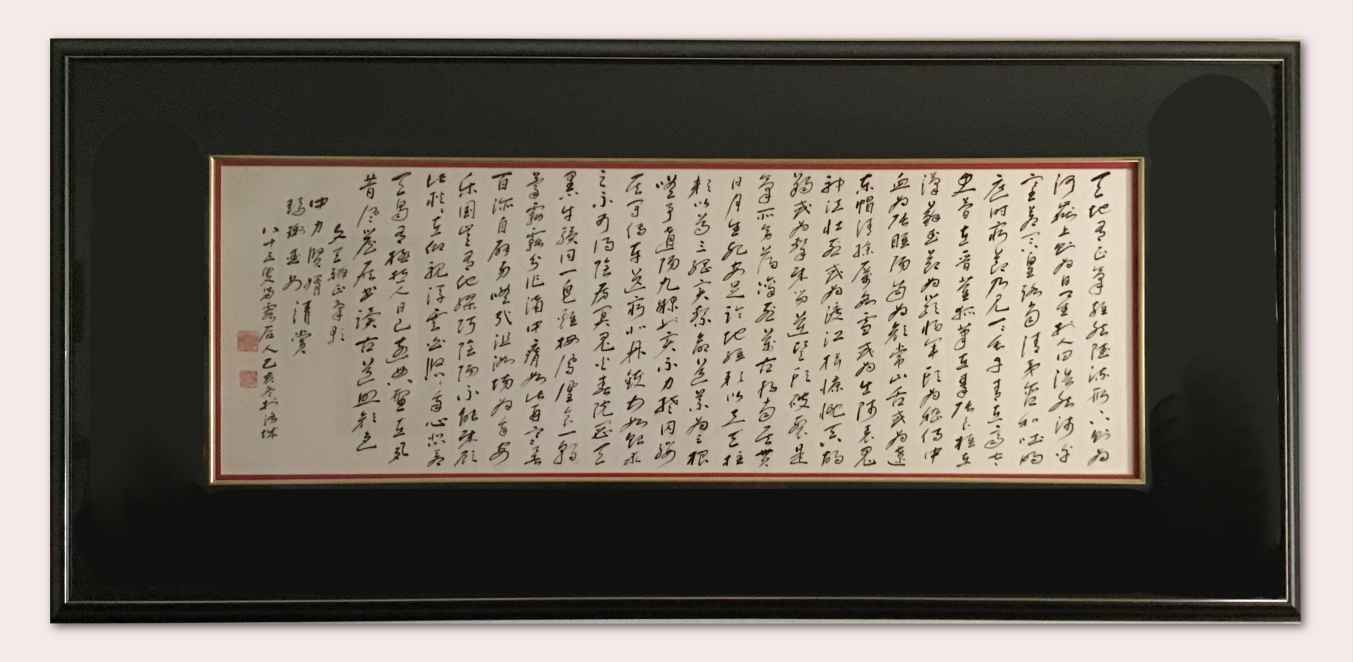 天地有正氣雜然賦流形下則為
河嶽上則為日星於人曰浩然沛乎
塞蒼冥皇路當清夷含和吐明
庭時窮節乃見一一垂丹青在齊太
史簡在晉董狐筆在秦張良椎在
漢蘇武節為嚴將軍頭為嵇侍中
血為張睢陽齒為顏常山舌或為遼
東帽清操厲冰雪或為出師表鬼
神泣壯烈或為渡江楫慷慨吞胡
羯或為擊賊笏逆豎頭破裂是
氣所旁薄凜烈萬古存當其貫
日月生死安足論地維賴以立天柱
賴以尊三綱實繫命道義為之根
嗟予遘陽九隸也實不力楚囚纓
其冠傳車送窮北鼎鑊甘如飴求
之不可得陰房冥鬼火春院閟天
黑牛驥同一皂雞棲鳳凰食一朝
蒙霧露分作溝中瘠如此再寒暑
百沴自辟易嗟哉沮洳場為我安
樂國豈有他繆巧陰陽不能賊顧
此耿耿在仰視浮雲白悠悠我心悲蒼
天曷有極哲人日已遠典型在夙
昔風簷展書讀古道照顏色
文天祥正氣歌
力賢婿清賞
八十五叟居人己亥冬於